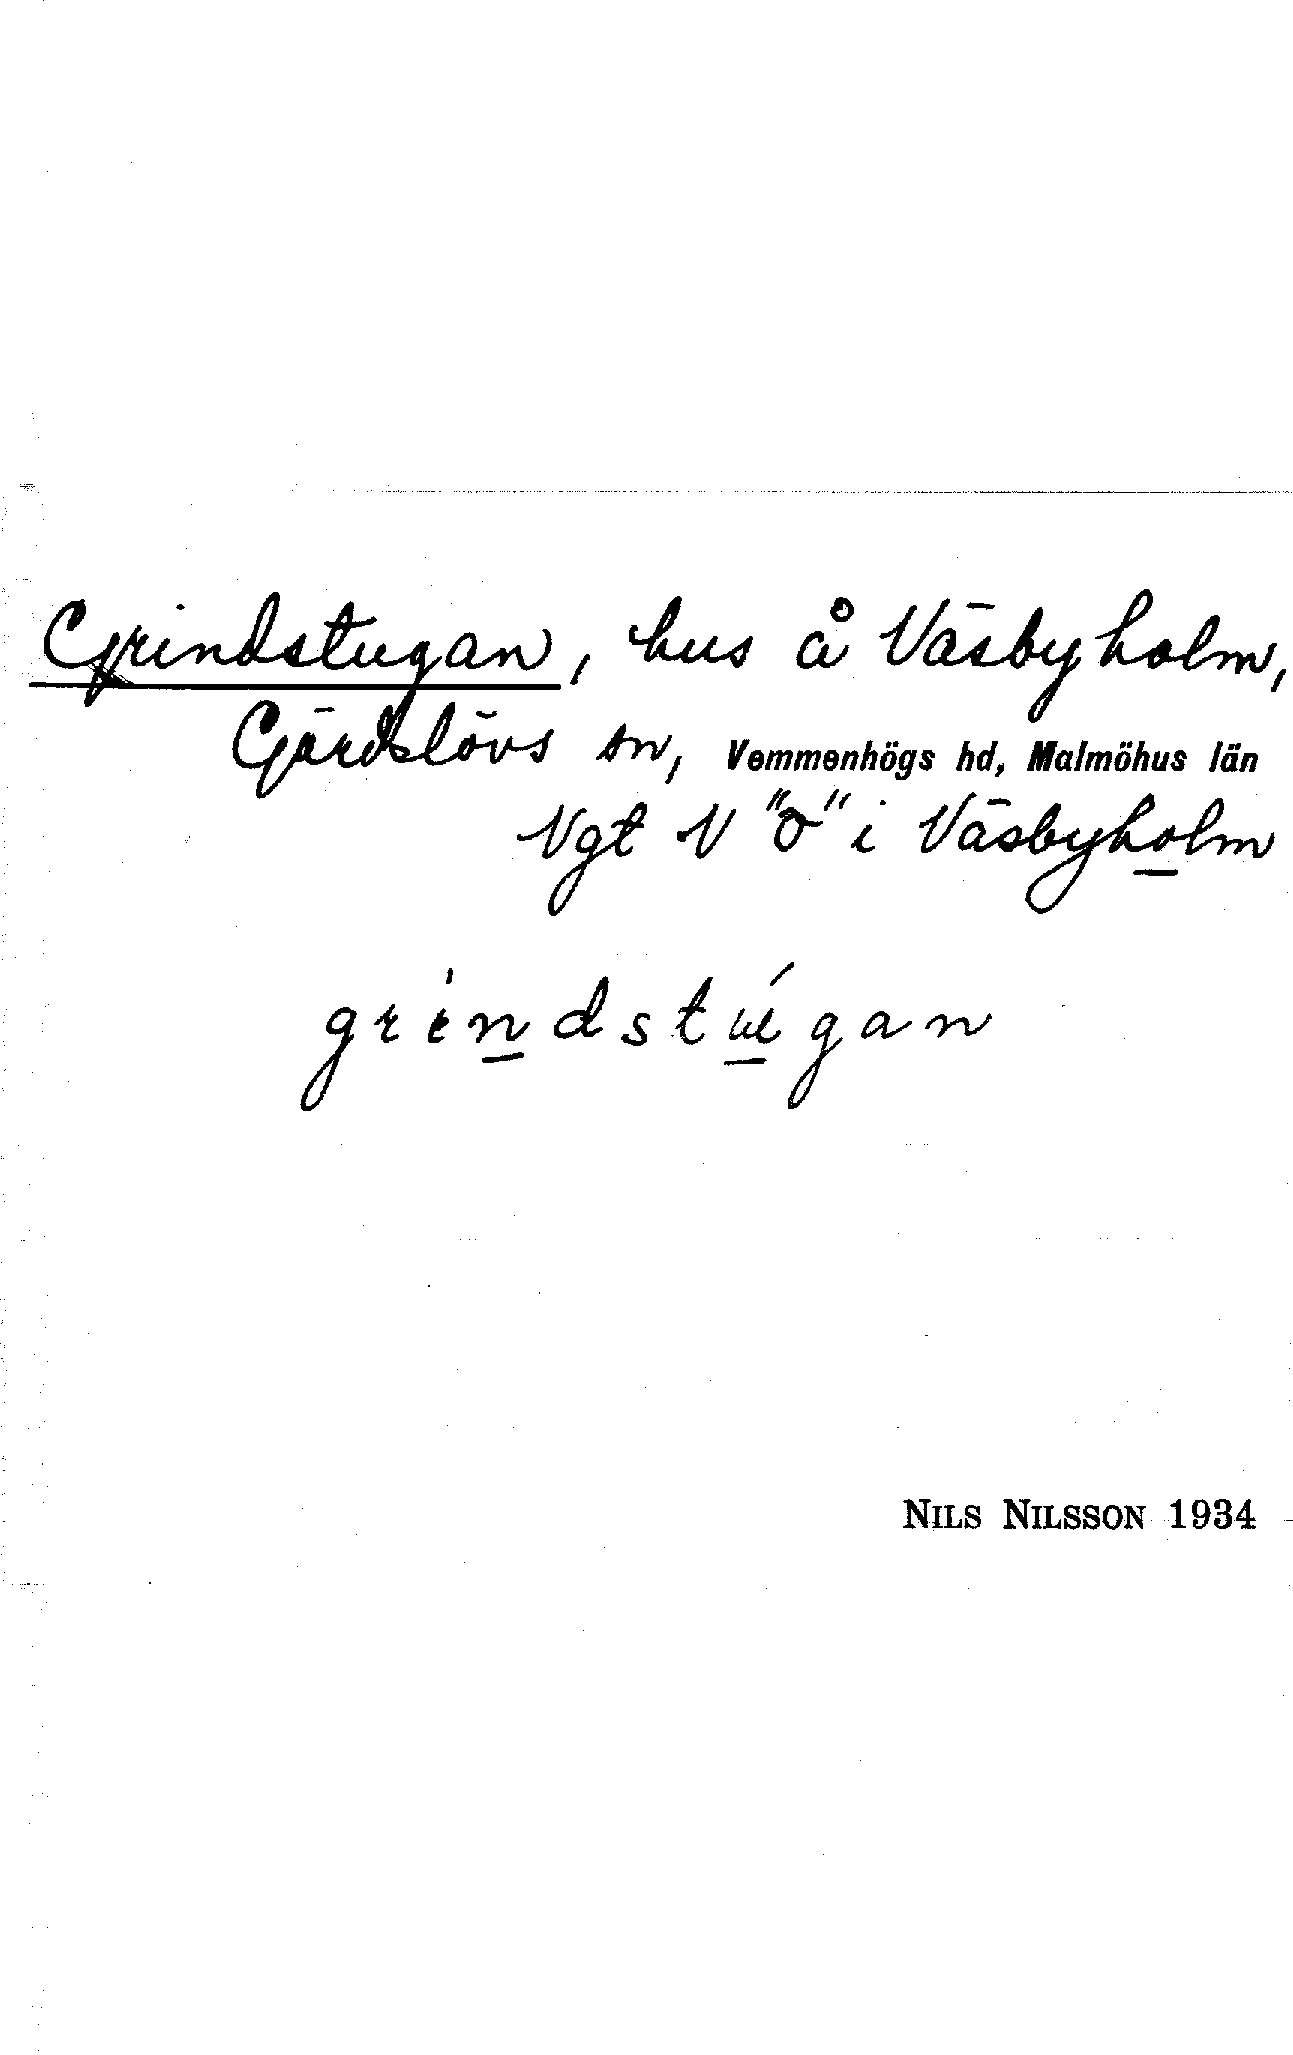 Grindstugan, hus å Väsbyholm,
Gärdslövs sn, Vemmenhögs hd, Malmöhus län
Vgt V "o" i Väsbyholm
NILS NILSSON 1934